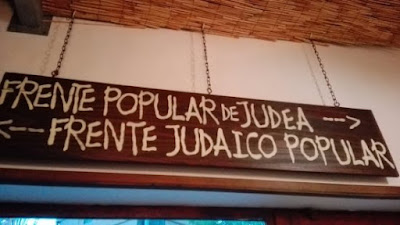 FRENTE POPULAR DE JUDEA -->
<-- FRENTE JUDAICO POPULAR